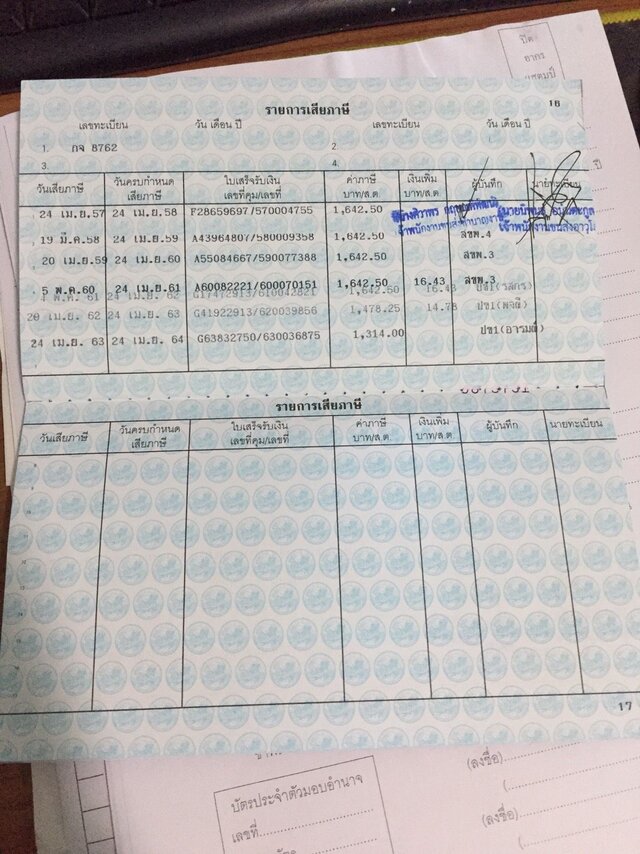 ปิด
อากร
แสตมป์
16
รายการเสียภาษี
เลขทะเบียน วัน เดือน ปี เลขทะเบียน วัน เดือน ปี
1. กจ 8762 2.
3. 4.
ปี
วันเสียภาษี วันครบกำหนดเสียภาษี ใบเสร็จรับเงิน เลขที่คุม/เลขที่ ค่าภาษี บาท/ส.ต. เงินเพิ่ม บาท/ส.ต. ผู้บันทึก นายทะเบียน
24 เม.ย.57 24 เม.ย.58 F28659697/570004755 1,642.50
19 มี.ค.58 24 เม.ย.59 A43964807/580009358 1,642.50 ลขพ.4
20 เม.ย.59 24 เม.ย.60 A55084667/590077388 1,642.50 ลขพ.3
5 พ.ค.60 24 เม.ย.61 A60082221/600070151 1,642.50 16.43 ลขพ.3
4 พ.ค. 61 24 เม.ย. 62 G17472913/610042821 1,642.50 16.43 ปข1(รสกร)
20 เม.ย. 62 24 เม.ย. 63 G41922913/620039856 1,478.25 14.78
24 เม.ย. 63 24 เม.ย. 64 G63832750/630036875 1,314.00 ปข1(อารมณ์)
รายการเสียภาษี
วันเสียภาษี วันครบกำหนดเสียภาษี ใบเสร็จรับเงิน เลขที่คุม/เลขที่ ค่าภาษี บาท/ส.ต. เงินเพิ่ม บาท/ส.ต. ผู้บันทึก นายทะเบียน
17
บัตรประจำตัวมอบอำนาจ
เลขที่
(ลงชื่อ)
(
(ลงชื่อ)
(